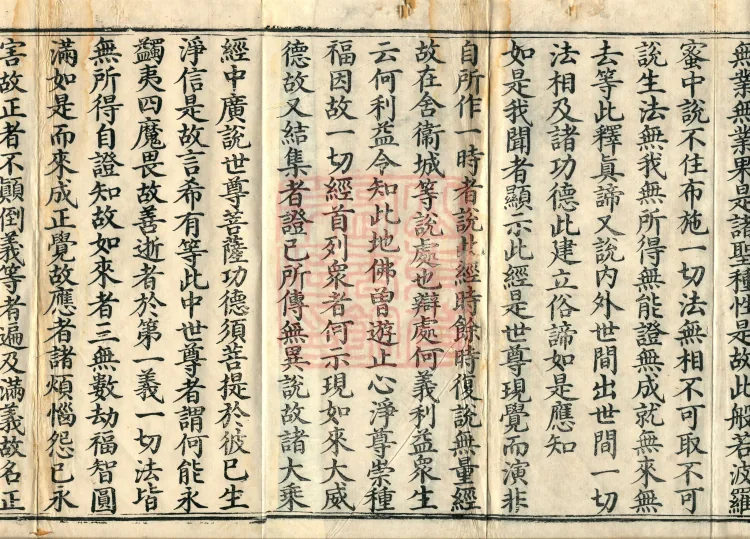 無業無業果是諸聖種性是故此般若波羅
蜜中說不住布施一切法無相不可取不可
說生法無我無所得無能證無成就無來無
去等此釋眞諦又說內外世間出世間一切
法相及諸功德此建立俗諦如是應知
如是我聞者顯示此經是世尊現覺而演非
自所作一時者說此經時餘時復說無量經
故在舍衞城等說處也辯處何義利益眾生
云何利益令知此地佛曾遊止心淨尊崇種
福因故一切經首列眾者何示現如來大威
德故又結集者證已所傳無異說故諸大乘
經中廣說世尊菩薩功德須菩提於彼已生
淨信是故言希有等此中世尊者謂何能永
蠲夷四魔畏故善逝者於第一義一切法皆
無所得自證知故如來者三無數劫福智圓
滿如是而來成正覺故應者諸煩惱怨已永
害故正者不顛倒義等者遍及滿義故名正